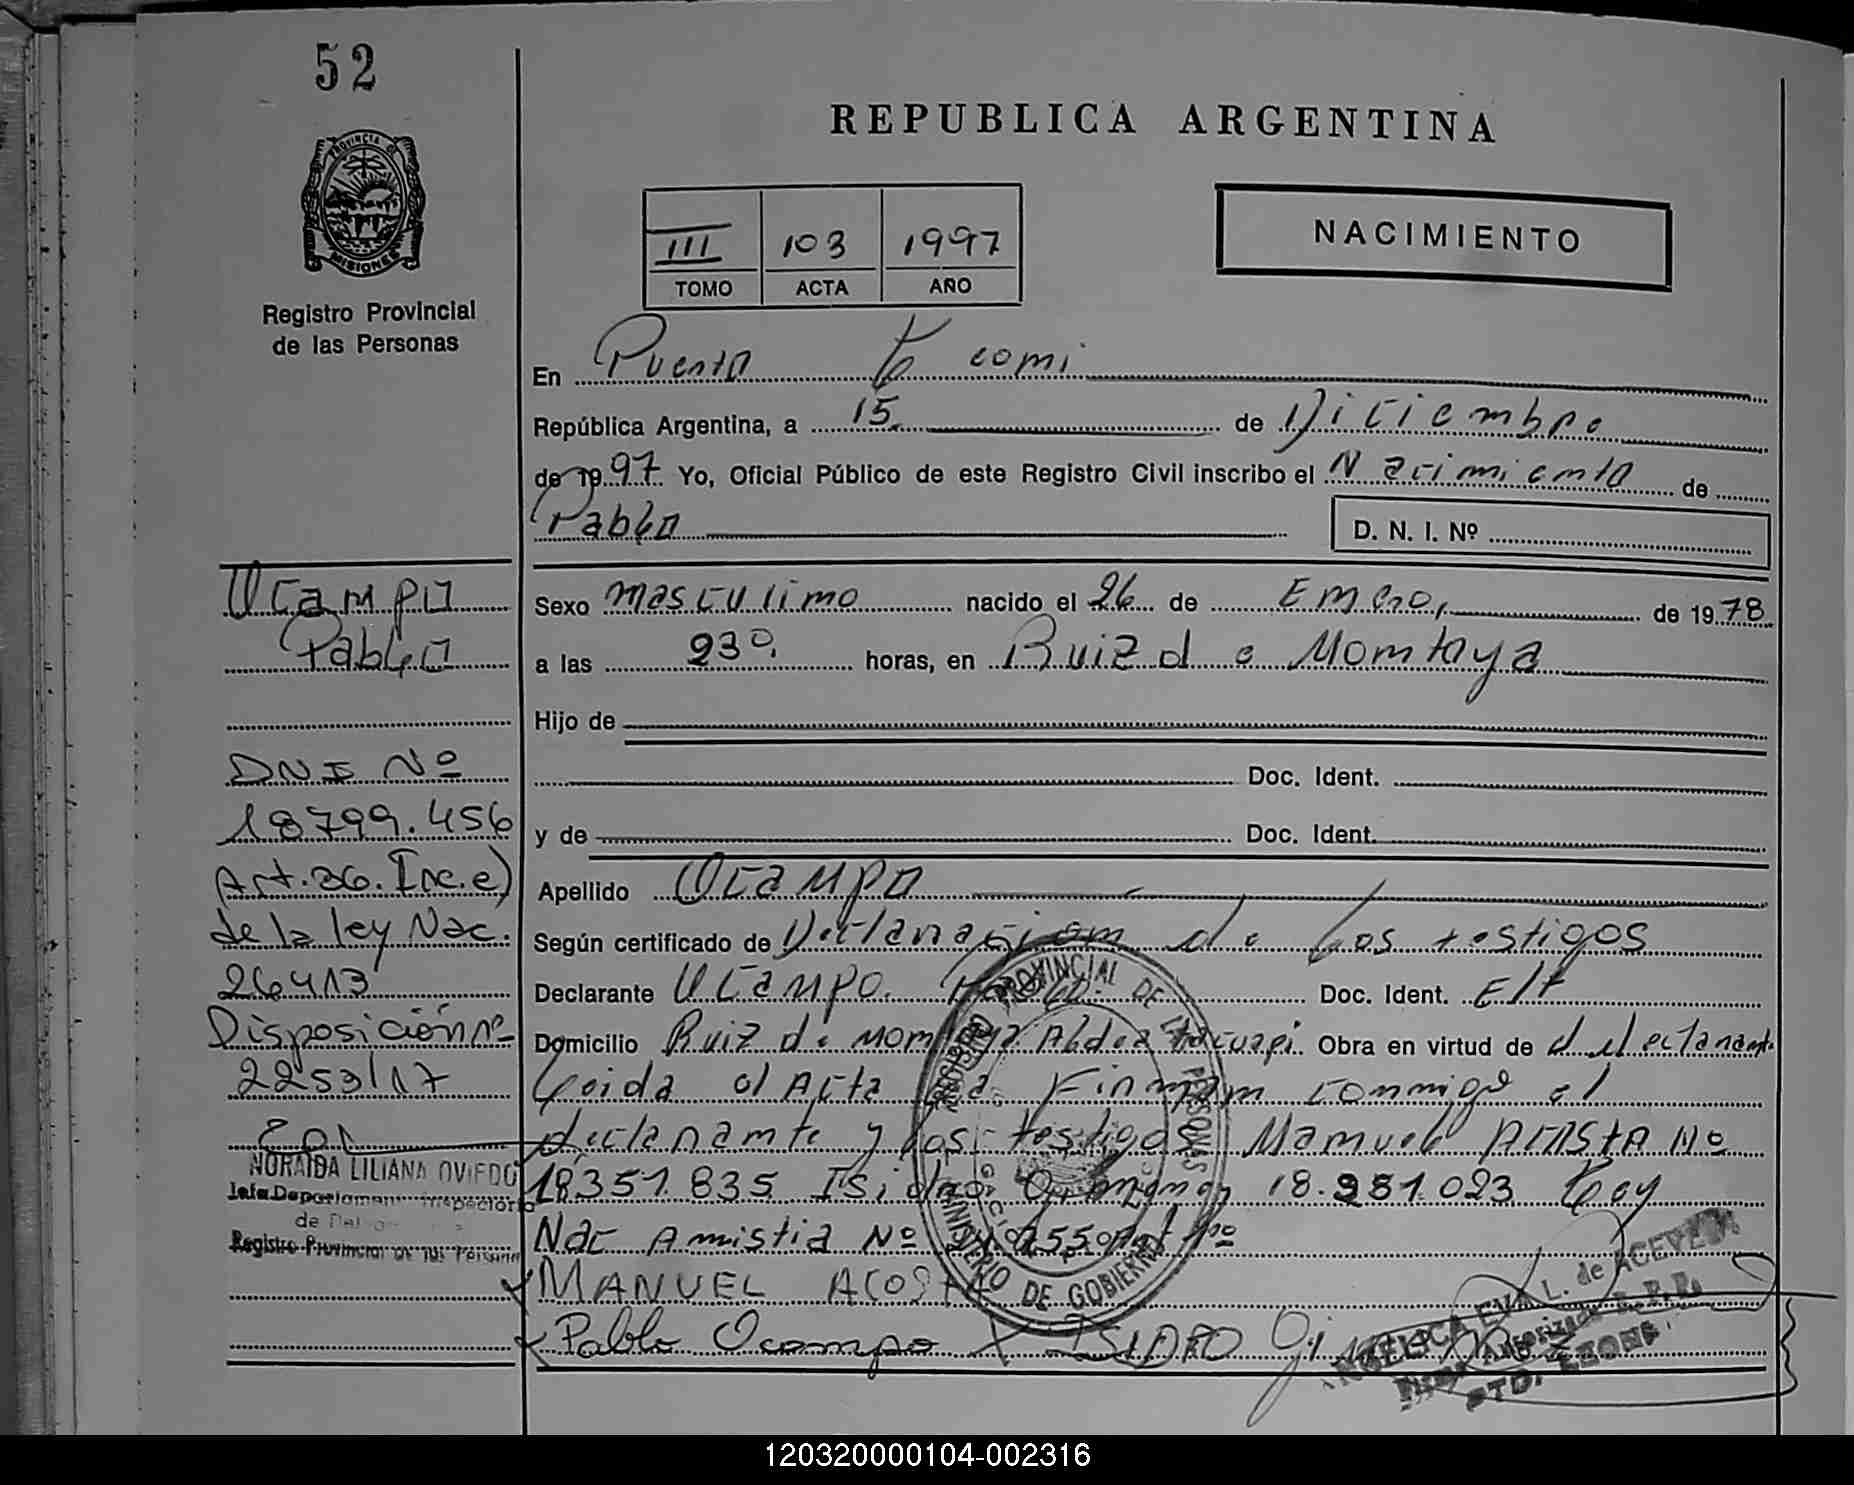 52
REPUBLICA ARGENTINA
PROVINCIA DE
MISIONES
Registro Provincial
de las Personas
III 103 1997
TOMO ACTA AÑO
NACIMIENTO
En Puerto Leoni
República Argentina, a 15. de Diciembre
de 1997. Yo, Oficial Público de este Registro Civil inscribo el Nacimiento de
Pablo D. N. I. Nº
Ocampo
Pablo
DNI Nº
18799.456
Art.36.Inc.e)
de la ley Nac.
26413
Disposición nº
2253/17
NORAIDA LILIANA OVIEDO
Jefa Departamento Inspectoria
Registro Provincial de las Personas
Sexo masculino nacido el 26 de Enero, de 1978
a las 23º. horas, en Ruiz de Montoya
Hijo de
Doc. Ident.
y de Doc. Ident.
Apellido Ocampo
Según certificado de Declaración de los testigos
Declarante Ocampo. Pablo. Doc. Ident. E/t
Domicilio Ruiz de Montoya Aldea Obra en virtud de el declarante
Leida el Acta la Firman conmigo el
declarante y los testigos Manuel Acosta Nº
18351.835 Isidro 18.951.023 Ley
Nac Amistia Nº
MANUEL ACOSTA
Pablo Ocampo X ISIDRO
REGISTRO PROVINCIAL DE LAS PERSONAS
MINISTERIO DE GOBIERNO
ANGELICA EVA L. de ACEVEDO
Firma Autorizada R. P. P.
PTO. LEONI
120320000104-002316